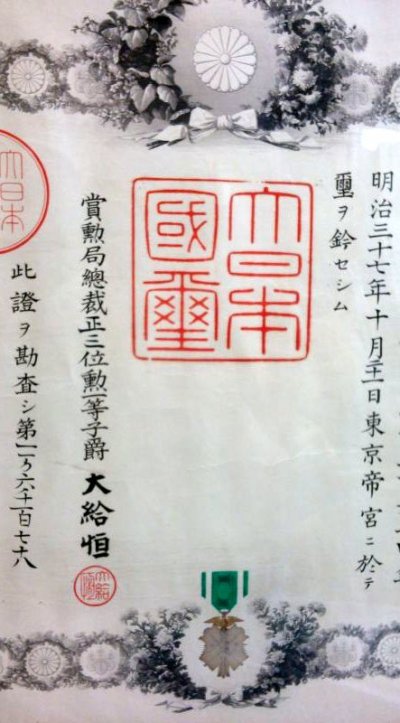 明治三十七年十月二十一日東京帝宮ニ於テ
璽ヲ鈐セシム
大日本
國璽
賞勲局總裁正三位勲一等子爵大給恒
此證ヲ勘査シ第一万六千百七十八
大日本